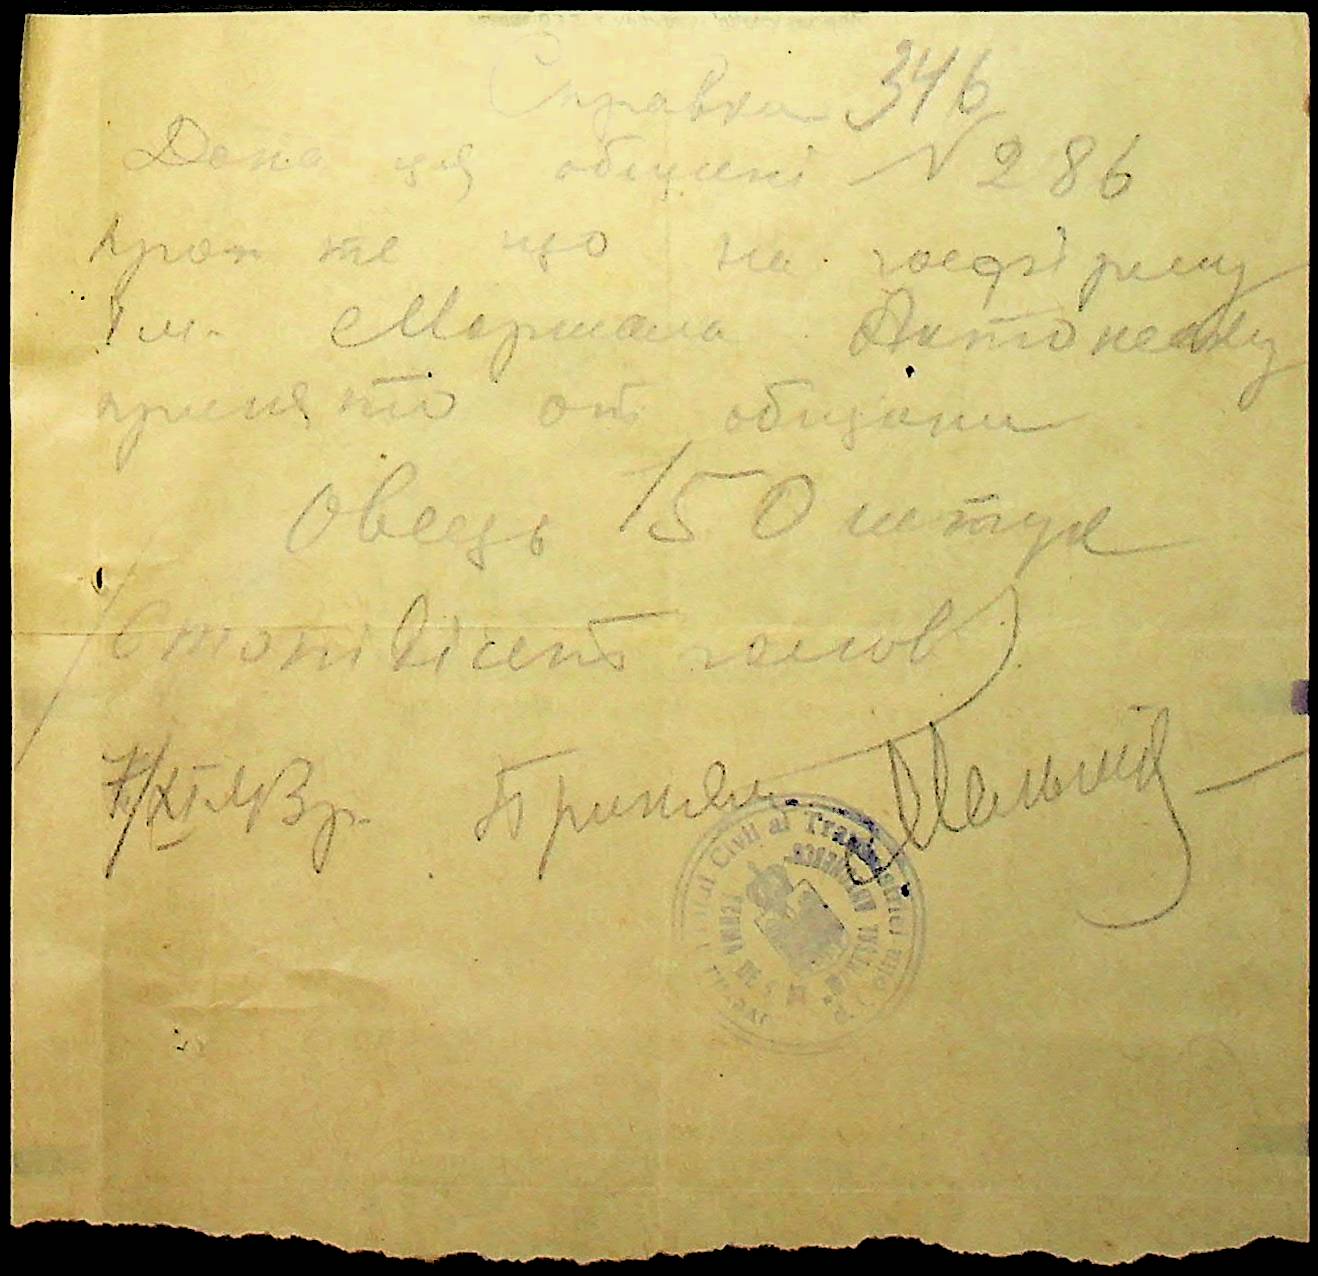 Справка 346
Дана ця общині N 286
про те що на госфірму
Ім. Маршала Антонеску
принято от общини
Овець 150 штук
(Стопівісят голов)
Приняв Мельник
Civil al Transnistriei